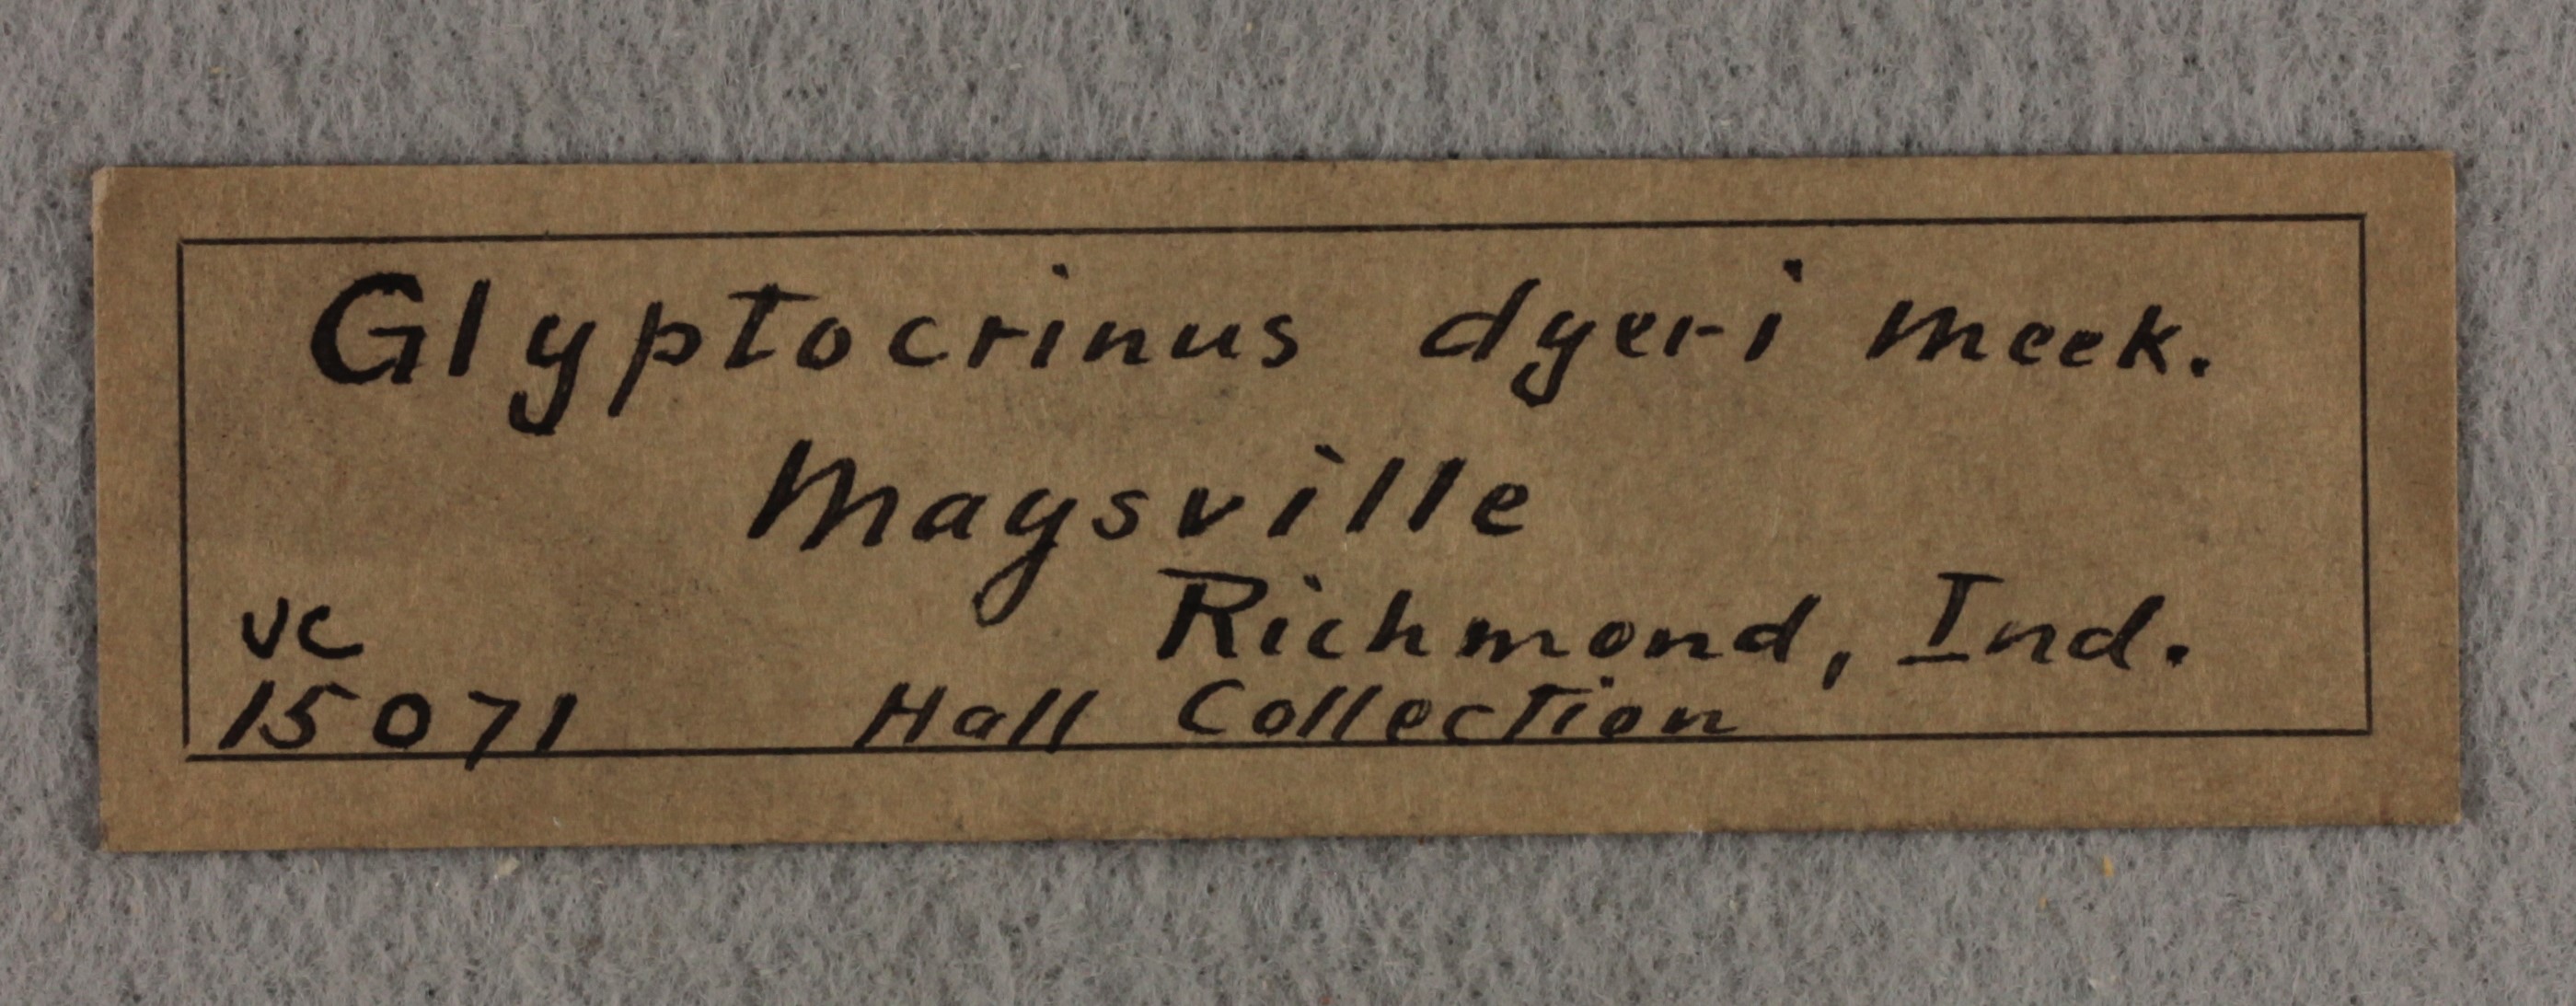 Glyptocrinus dyeri Meek.
Maysville
Richmond, Ind.
UC
15071 Hall Collection